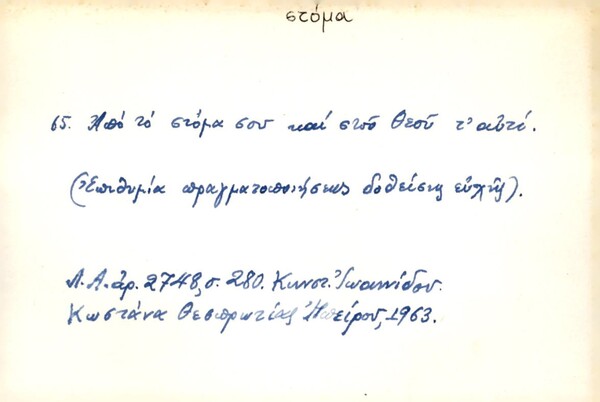 στόμα
65. Ἀπό τό στόμα σου καί στοῦ Θεοῦ τ' αὐτί.
(Ἐπιθυμία πραγματοποιήσεως δοθείσης εὐχῆς).
Λ.Α. ἀρ. 2748, σ. 280. Κωνστ. Ἰωαννίδου.
Κωστάνα Θεσπρωτίας Ἠπείρου, 1963.